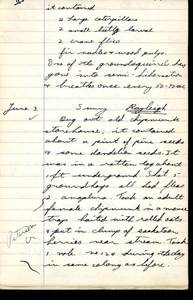 it contained
4 large caterpillars
2 small beetle larvae
2 crane flies
fir needles & wood pulp.
One of the groundsquirrels has
gone into semi-hibernation
& breathes once every 60-70 sec
June 3 Sunny Rayleigh
Dug out old chipmunk
storehouse; it contained
about a pint of pine seeds
& some seeds. It
was in a rotten log about
1 ft underground. Shot 5
groundhogs all had fleas
2 Took an adult
female chipmunk in a mouse
trap baited with rolled oats
& set in clump of
berries near stream. Took
1 vole during the day
in same colony as before.